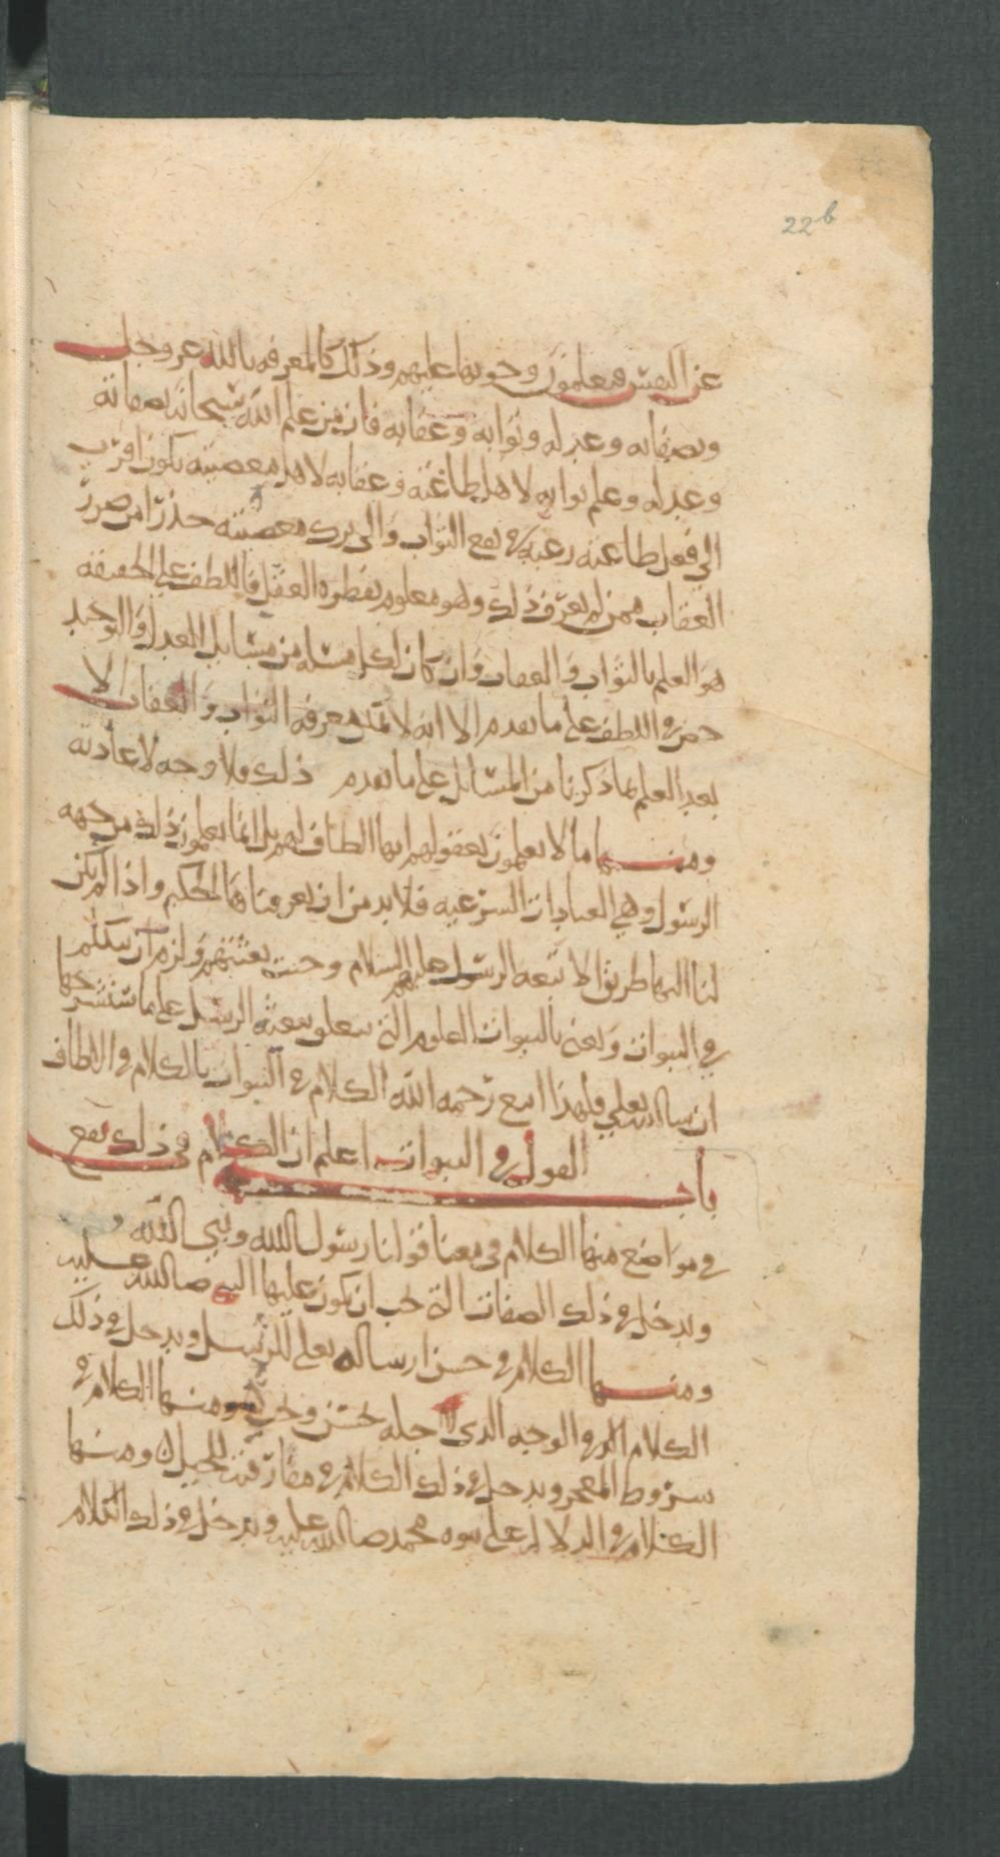 22b
عن النفس فيعلمون وجوبها عليهم وذلك كالمعرفه بالله عز وجل
وبصفاته وعدله وثوابه وعقابه فان من علم الله سبحانه بصفاته
وعدله وعلم ثوابه لاهل طاعته وعقابه لاهل معصيته يكون اقرب
الى فعل طاعته رغبة في نفع الثواب والى ترك معصيته حذرا من ضرر
العقاب ممن لم يعرف ذلك وهو معلوم بفطره العقل فاللطف على الحقيقه
هو العلم بالثواب والعقاب وان كان لكل مسله من مسايل العدل والتوحيد
حض في اللطف على ما تقدم الا انه لا تتم معرفه الثواب والعقاب الا
بعد العلم بما ذكرنا من المسايل على ما تقدم ذلك ولا وجه لاعادته
ومنها ما لا يعلمون بعقولهم انها الطاف لهم بل انما يعلمون ذلك من جهه
الرسول وهي العبادات الشرعيه فلا بد من ان يعرفناها الحكيم واذا لم يكن
لنا اليها طريق الا بتبعه الرسول عليهم السلام وحسنت بعثتهم ولزم ان نتكلم
في النبوات ونعني بالنبوات العلوم التي تتعلق ببعثه الرسل على ما سنشرحها
ان شا الله تعلى فلهذا اتبع رحمه الله الكلام في النبوات بالكلام في الالطاف
باب القول في النبوات اعلم ان الكلام في ذلك يقع
في مواضع منها الكلام في معنا قولنا رسول الله ونبي الله و
يدخل في ذلك الصفات التي يجب ان يكون عليها النبي صلى الله عليه
ومنها الكلام في حسن ارساله تعلى للرسل ويدخل في ذلك
الكلام في الوجه الذي لاجله يحسن ويجب ومنها الكلام في
شروط المعجز ويدخل في ذلك الكلام في مفارقته للحيل ومنها
الكلام في الدلاله على نبوه محمد صلى الله عليه ويدخل في ذلك الكلام